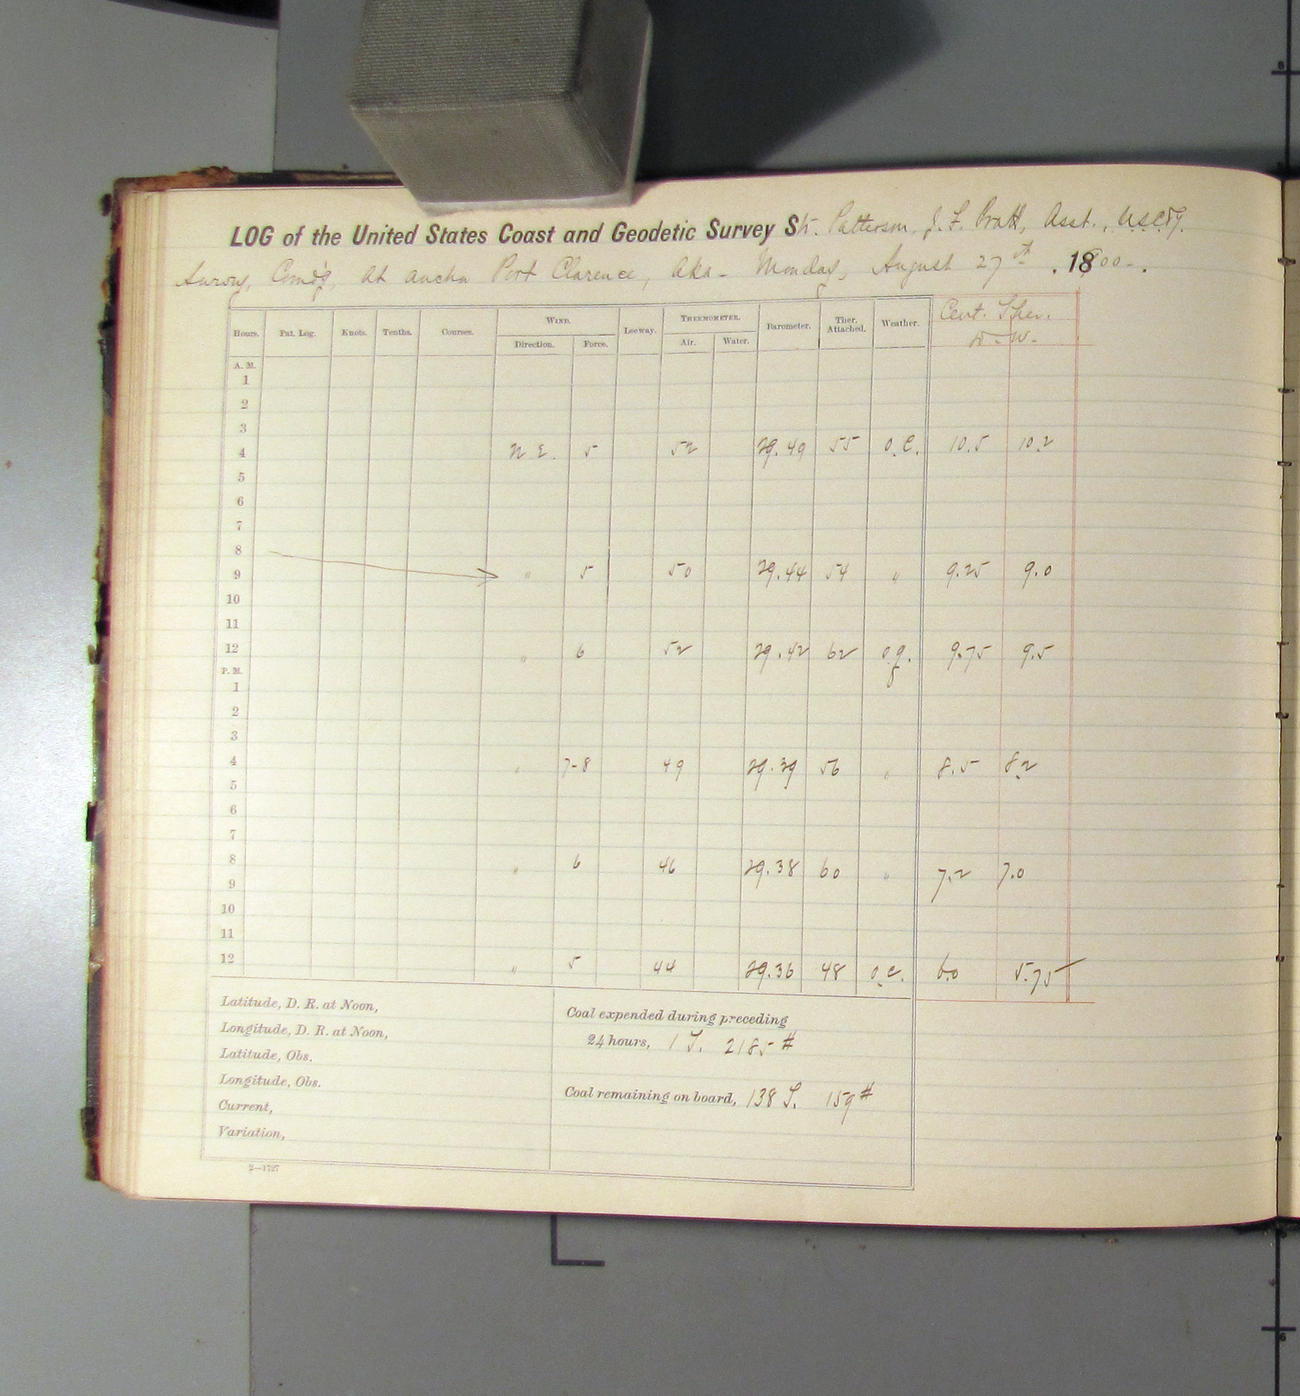 LOG of the United States Coast and Geodetic Survey Str. Patterson, J. F. Pratt, Asst., USC&G.
Survey, Comd'g, At anchor Port Clarence, Aka- Monday, August 27th, 1800-.
Hours. Pat. Log. Knots. Tenths. Courses. WIND. Leeway. THERMOMETER. Barometer. Ther. Attached. Weather. Cent. Ther.
Direction. Force. Air. Water. D- W-
A. M.
1
2
3
4 N E. 5 52 29.49 55 o.c. 10.5 10.2
5
6
7
8
9 " 5 50 29.44 54 " 9.25 9.0
10
11
12 " 6 52 29.42 62 o.g. 9.75 9.5
P. M.
1
2
3
4 " 7-8 49 29.39 56 " 8.5 8.2
5
6
7
8 " 6 46 29.38 60 " 7.2 7.0
9
10
11
12 " 5 44 29.36 48 o.c. 6.0 5.75
Latitude, D. R. at Noon,
Longitude, D. R. at Noon,
Latitude, Obs.
Longitude, Obs.
Current,
Variation,
Coal expended during preceding
24 hours, 1 T. 2185 #
Coal remaining on board, 138 T. 159 #
2—1727
8
6